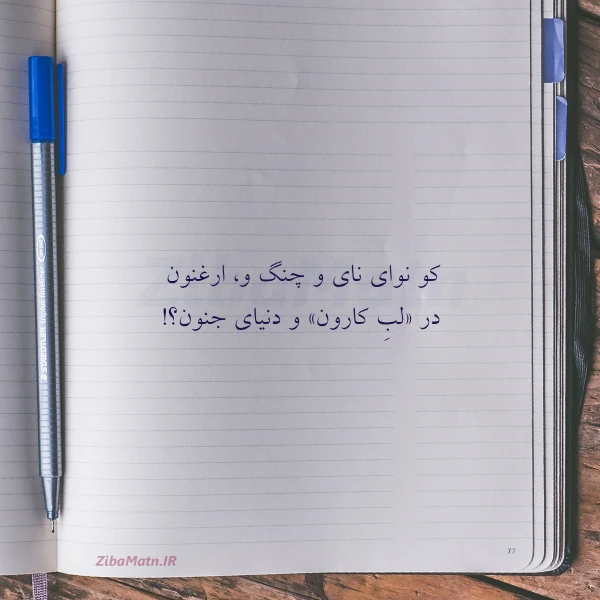 کو نوای نای و چنگ و، ارغنون
در «لبِ کارون» و دنیای جنون؟!
ZibaMatn.IR
77